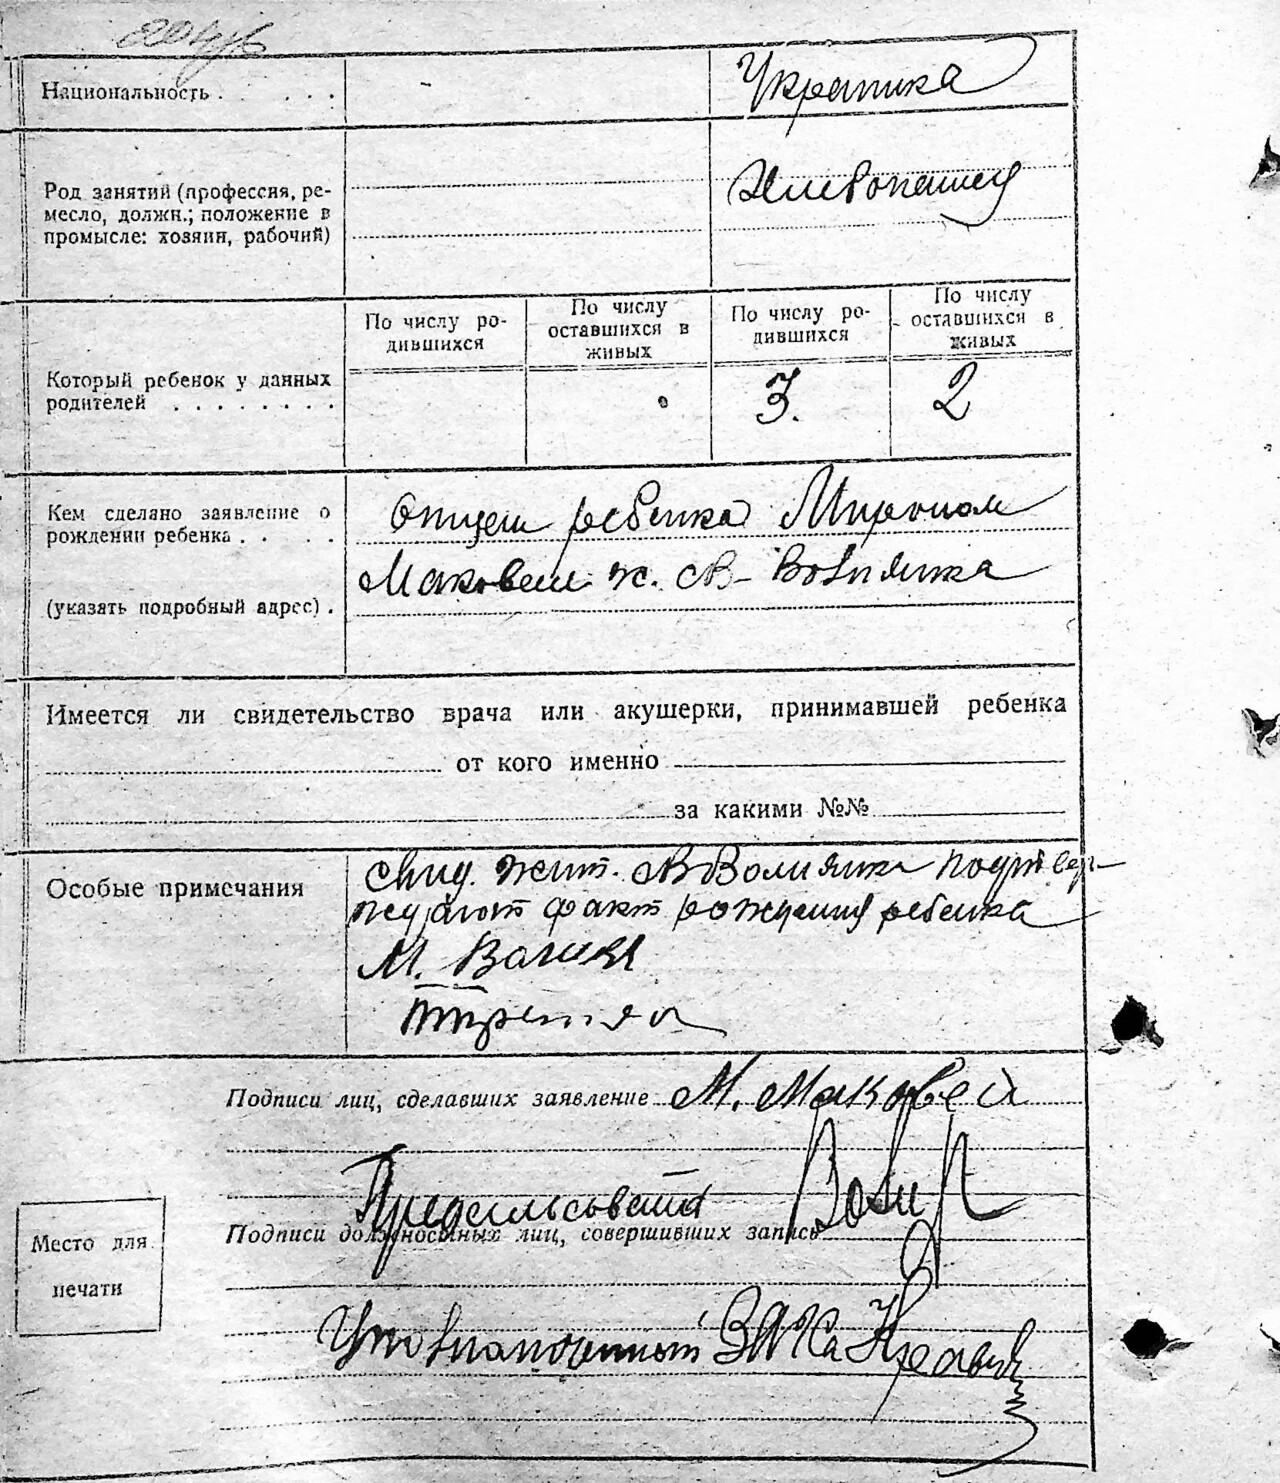 Национальность . . . . . - Украинка
Род занятий (профессия, ре-
месло, должн.; положение в
промысле: хозяин, рабочий)
Хлебопашец
По число ро-
дившихся
По числу
оставшихся в
живых
По числу ро-
дившихся
По числу
оставшихся в
живых
Который ребенок у данных
родителей . . . . . . . . 3. 2
Кем сделано заявление о
рождении ребенка . . . .
(указать подробный адрес) .
Отцем ребенка Мироном
Маковеем ж.
Имеется ли свидетельство врача или акушерки, принимавшей ребенка
от кого именно
за какими №№
Особые примечания
свид. жит. подтвер-
ждают факт рождения ребенка
М.
Подписи лиц, сделавших заявление М. Маковей
Предсельсовета
Подписи должностных лиц, совершивших запись
Место для
печати
Уповнаноченный ЗАГСа